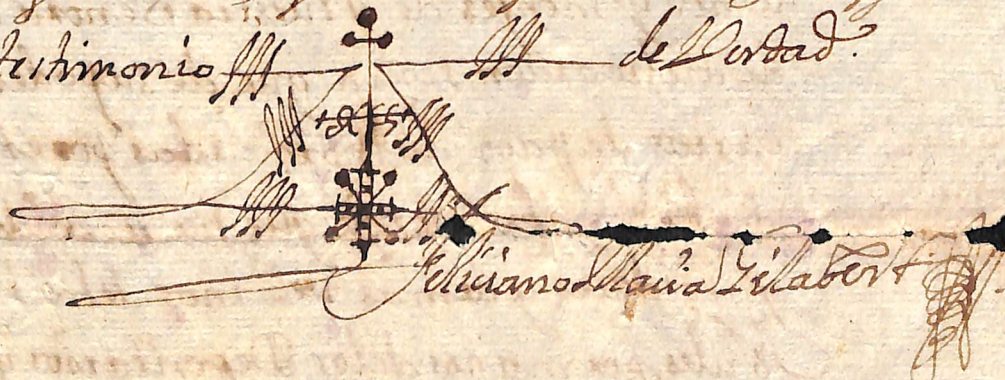 testimonio de Verdad.
Feliciano Maria Gilabert